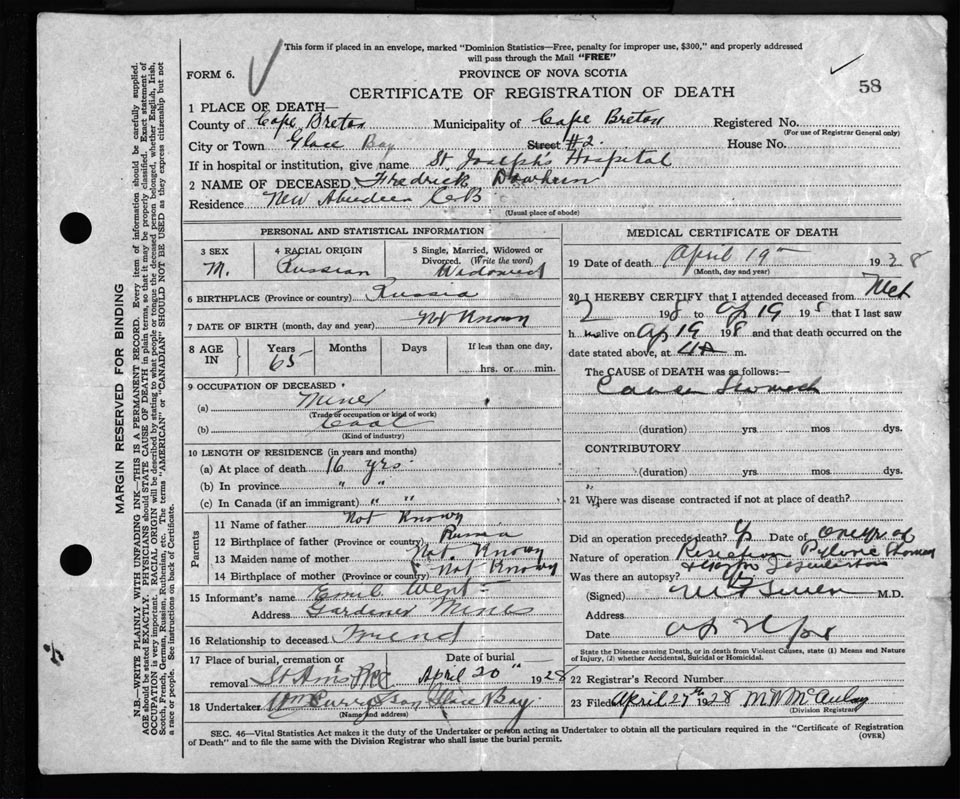 This form if placed in an envelope, marked "Dominion Statistics—Free, penalty for improper use, $300," and properly addressed
will pass through the Mail "FREE"
FORM 6.
PROVINCE OF NOVA SCOTIA
58
CERTIFICATE OF REGISTRATION OF DEATH
1 PLACE OF DEATH—
County of Cape Breton Municipality of Cape Breton Registered No.
(For use of Registrar General only)
City or Town Glace Bay Street #2. House No.
If in hospital or institution, give name St Joseph's Hospital
2 NAME OF DECEASED Fredrick
Residence New Aberdeen C.B
(Usual place of abode)
PERSONAL AND STATISTICAL INFORMATION
3 SEX
M.
4 RACIAL ORIGIN
Russian
5 Single, Married, Widowed or
Divorced. (Write the word)
Widowed
6 BIRTHPLACE (Province or country) Russia
7 DATE OF BIRTH (month, day and year) Not Known
8 AGE
IN
Years
65
Months
Days
If less than one day,
hrs. or min.
9 OCCUPATION OF DECEASED
(a) Miner
(Trade or occupation or kind of work)
(b) Coal
(Kind of industry)
10 LENGTH OF RESIDENCE (in years and months)
(a) At place of death 16 yrs.
(b) In province " "
(c) In Canada (if an immigrant) " "
Parents
11 Name of father Not Known
12 Birthplace of father (Province or country) Russia
13 Maiden name of mother Not Known
14 Birthplace of mother (Province or country) Not Known
15 Informant's name Emil
Address Gardener Mines
16 Relationship to deceased friend
17 Place of burial, cremation or
removal St Ann's
Date of burial
April 20" 1928
18 Undertaker Glace Bay
(Name and address)
MEDICAL CERTIFICATE OF DEATH
19 Date of death April 19th 1928
(Month, day and year)
20 I HEREBY CERTIFY that I attended deceased from Mch
2 1928 to Ap 19 1928 that I last saw
h im alive on Ap 19 1928 and that death occurred on the
date stated above, at m.
The CAUSE OF DEATH was as follows:—
Cancer Stomach
(duration) yrs mos dys.
CONTRIBUTORY
(duration) yrs mos dys.
21 Where was disease contracted if not at place of death?
Did an operation precede death? Date of
Nature of operation Resection Pyloric
Was there an autopsy?
(Signed) M.D.
Address
Date
State the Disease causing Death, or in death from Violent Causes, state (1) Means and
Nature of Injury, (2) whether Accidental, Suicidal or Homicidal.
22 Registrar's Record Number
23 Filed April 27th 1928 M W McAulay
(Division Registrar)
SEC. 46—Vital Statistics Act makes it the duty of the Undertaker or person acting as Undertaker to obtain all the particulars required in the "Certificate of Registration
of Death" and to file the same with the Division Registrar who shall issue the burial permit.
(OVER)
MARGIN RESERVED FOR BINDING
N.B.—WRITE PLAINLY WITH UNFADING INK—THIS IS A PERMANENT RECORD. Every item of information should be carefully supplied.
AGE should be stated EXACTLY. PHYSICIANS should STATE CAUSE OF DEATH in plain terms, so that it may be properly classified. Exact statement of
OCCUPATION is very important. RACIAL ORIGIN will be described by stating to what people or tongue the deceased person belonged, whether English, Irish,
Scotch, French, German, Russian, Ruthenian, etc. The terms "AMERICAN" or "CANADIAN" SHOULD NOT BE USED as they express citizenship but not
a race or people. See instructions on back of Certificate.